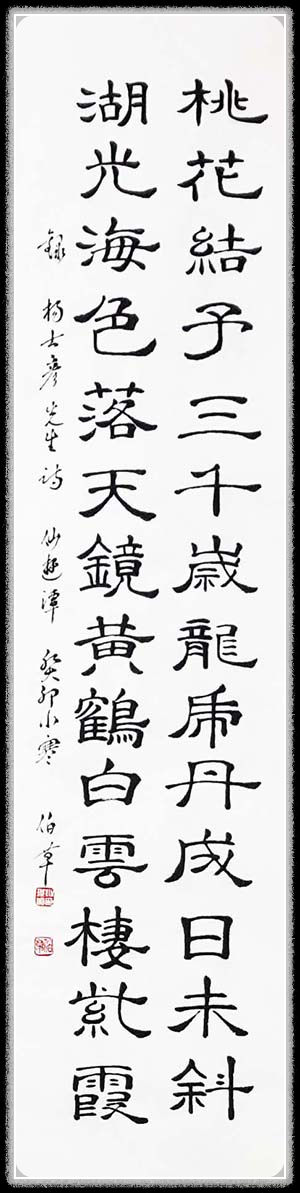 桃花結子三千歲龍虎丹成日未斜
湖光海色落天鏡黃鶴白雲棲紫霞
錄 楊士彥先生詩 仙遊潭 癸卯小寒 伯草